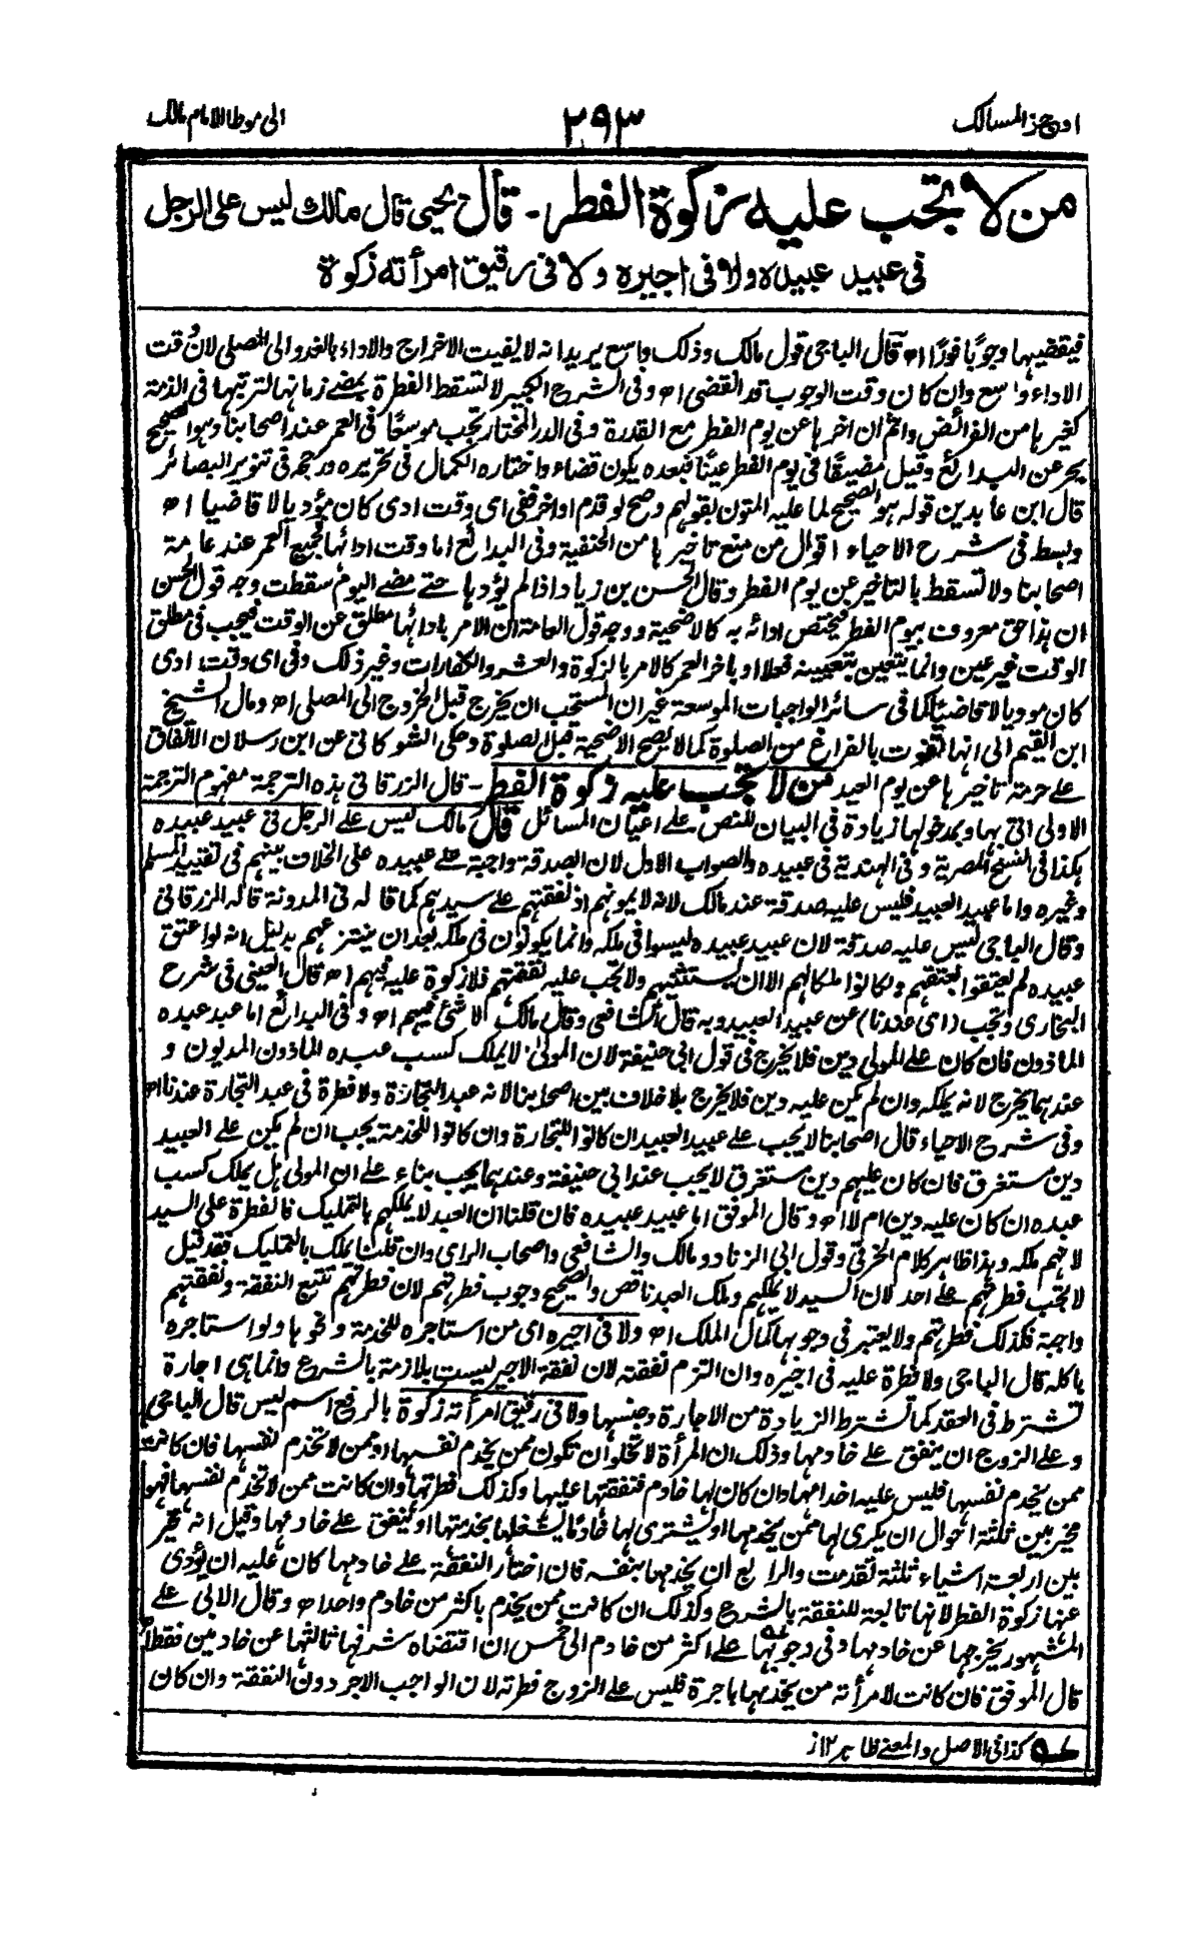 اوجز المسالك
٢٩٣
الى موطا الامام مالك
من لا تجب عليه زكوة الفطر - قال يحيى قال مالك ليس على الرجل
فى عبيد عبيده ولا فى اجيره ولا فى رقيق امرأته زكوة
فيقضيها وجوبًا فورًا اھ قال الباجى قول مالك وذلك واسع يريد انه لا يفيت الاخراج والاداء بالغدو الى المصلى لان وقت
الاداء واسع وان كان وقت الوجوب قد انقضى اھ وفى الشرح الكبير لا تسقط الفطرة بمضے زمانها لترتبها فى الذمة
كغيرها من الفرائض واثم ان اخرها عن يوم الفطر مع القدرة وفى الدر المختار تجب موسعًا فى العمر عند اصحابنا وهو الصحيح
بحر عن البدائع وقيل مضيقًا فى يوم الفطر عينًا فبعده يكون قضاء واختاره الكمال فى تحريره ورجحه فى تنوير البصائر
قال ابن عابدين قوله هو الصحيح لما عليه المتون بقولهم وصح لو قدم او اخر ففى اى وقت ادى كان مؤديا لا قاضيا اھ
وبسط فى شرح الاحياء اقوال من منع تاخيرها من الحنفية وفى البدائع اما وقت ادائها فجميع العمر عند عامة
اصحابنا ولا تسقط بالتاخير عن يوم الفطر وقال الحسن بن زياد اذا لم يؤدها حتے مضے اليوم سقطت وجه قول الحسن
ان هذا حق معروف بيوم الفطر فيختص ادائه به كالاضحية ووجه قول العامة ان الامر بادائها مطلق عن الوقت فيجب فى مطلق
الوقت غير عين وانما يتعين بتعيينه فعلا او باخر العمر كالامر بالزكوة والعشر والكفارات وغير ذلك وفى اى وقت ادى
كان موديا لا قاضيًا كما فى سائر الواجبات الموسعة غير ان المستحب ان يخرج قبل الخروج الى المصلى اھ ومال الشيخ
ابن القيم الى انها تفوت بالفراغ من الصلوة كما لا يصح الاضحية قبل الصلوة وحكى الشوكانى عن ابن رسلان الاتفاق
علے حرمة تاخيرها عن يوم العيد من لا تجب عليه زكوة الفطر - قال الزرقانى هذه الترجمة مفهوم الترجمة
الاولى اتى بها وبمدخولها زيادة فى البيان للنص علے اعيان المسائل قال مالك ليس علے الرجل فى عبيد عبيده
هكذا فى النسخ المصرية وفى الهندية فى عبيده والصواب الاول لان الصدقة واجبة علے عبيده على الخلاف بينهم فى تقييد المسلم
وغيره واما عبيد العبيد فليس عليه صدقة عند مالك لانه لا يمونهم اذ نفقتهم علے سيدهم كما قاله فى المدونة قاله الزرقانى
وقال الباجى ليس عليه صدقة لان عبيد عبيده ليسوا فى ملكه وانما يكونون فى ملكه بعد ان ينتزعهم بدليل انه لو اعتق
عبيده لم يعتقوا بعتقهم ولكانوا ملكا لهم الا ان يستثنيهم ولا تجب عليه نفقتهم فلا زكوة عليه فيهم اھ قال العينى فى شرح
البخارى وتجب (اى عندنا) عن عبيد العبيد وبه قال الشافعى وقال مالك لا شئ فيهم اھ وفى البدائع اما عبد عبده
الماذون فان كان علے المولى دين فلا يخرج فى قول ابى حنيفة لان المولى لا يملك كسب عبده الماذون المديون و
عندهما يخرج لانه يملكه وان لم يكن عليه دين فلا يخرج بلا خلاف بين اصحابنا لانه عبد التجارة ولا فطرة فى عبد التجارة عندنا اھ
وفى شرح الاحياء قال اصحابنا لا يجب علے عبيد العبيد ان كانوا للتجارة وان كانوا للخدمة يجب ان لم يكن علے العبيد
دين مستغرق فان كان عليهم دين مستغرق لا يجب عند ابى حنيفة وعندهما يجب بناء علے ان المولى هل يملك كسب
عبده ان كان عليه دين ام لا اھ وقال الموفق اما عبيد عبيده فان قلنا ان العبد لا يملكهم بالتمليك فالفطرة على السيد
لانهم ملكه وهذا ظاهر كلام الخرقى وقول ابى الزناد ومالك والشافعى واصحاب الراى وان قلنا يملك بالتمليك فقد قيل
لا تجب فطرتهم علے احد لان السيد لا يملكهم وملك العبد ناقص والصحيح وجوب فطرتهم لان فطرتهم تتبع النفقة ونفقتهم
واجبة فكذلك فطرتهم ولا يعتبر فى وجوبها كمال الملك اھ ولا فى اجيره اى من استاجره للخدمة ونحوها ولو استاجره
باكله قال الباجى ولا فطرة عليه فى اجيره وان التزم نفقته لان نفقة الاجير ليست بلازمة بالشرع وانما هى اجارة
تشترط فى العقد كما تشترط الزيادة من الاجارة وجنسها ولا فى رقيق امرأته زكوة بالرفع اسم ليس قال الباجى
وعلے الزوج ان ينفق علے خادمها وذلك ان المرأة لا تخلو ان تكون ممن يخدم نفسها او ممن لا تخدم نفسها فان كانت
ممن يخدم نفسها فليس عليه اخدامها وان كان لها خادم فنفقتها عليها وكذلك فطرتها وان كانت ممن لا تخدم نفسها فهو
مخير بين ثلثة احوال ان يكرى لها ممن يخدمها او يشترى لها خادمًا يشغلها بخدمتها او ينفق علے خادمها وقيل انه مخير
بين اربعة اشياء ثلثة تقدمت والرابع ان يخدمها بنفسه فان اختار النفقة علے خادمها كان عليه ان يؤدى
عنها زكوة الفطر لانها تابعة للنفقة بالشرع وكذلك ان كانت ممن يخدم باكثر من خادم واحد اھ وقال الابى علے
المشهور يخرجها عن خادمها وفى وجوبها علے اكثر من خادم الى خمس ان اقتضاه شرفها ثالثها عن خادمين فقط اھ
قال الموفق فان كانت لامرأته من يخدمها باجرة فليس علے الزوج فطرته لان الواجب الاجر دون النفقة وان كان
كذا فى الاصل والمعنے ظاهر ١٢ ز